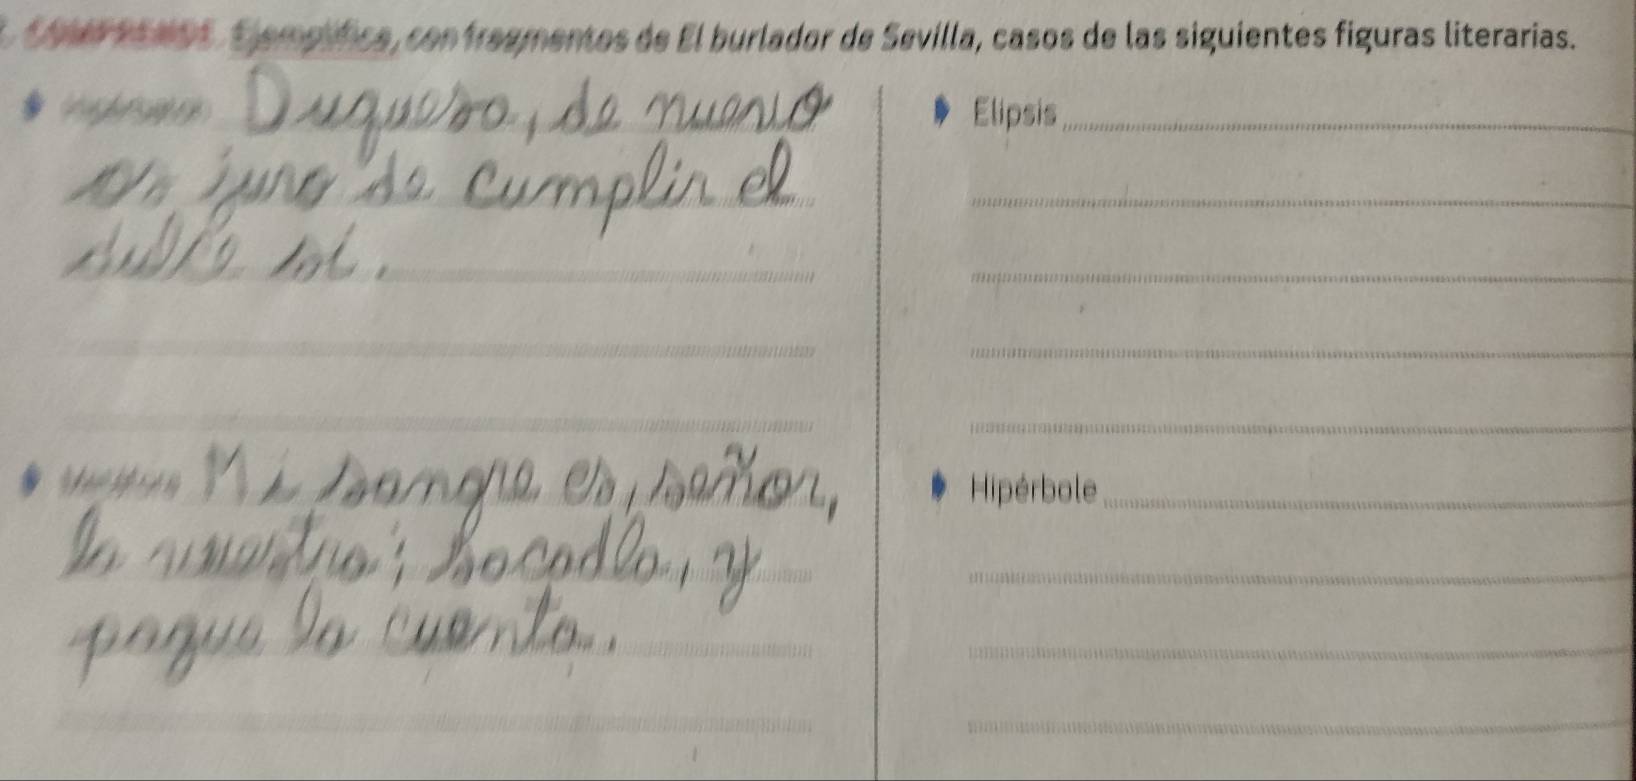 COMPRENDE. Ejemplifica, con fragmentos de El burlador de Sevilla, casos de las siguientes figuras literarias.
Duquesa, de nuevo
os juro de cumplir el
dulce sí.
Mi sangre es, señor,
la vuestra; sacadla, y
pague la cuenta.
Elipsis
Hipérbole